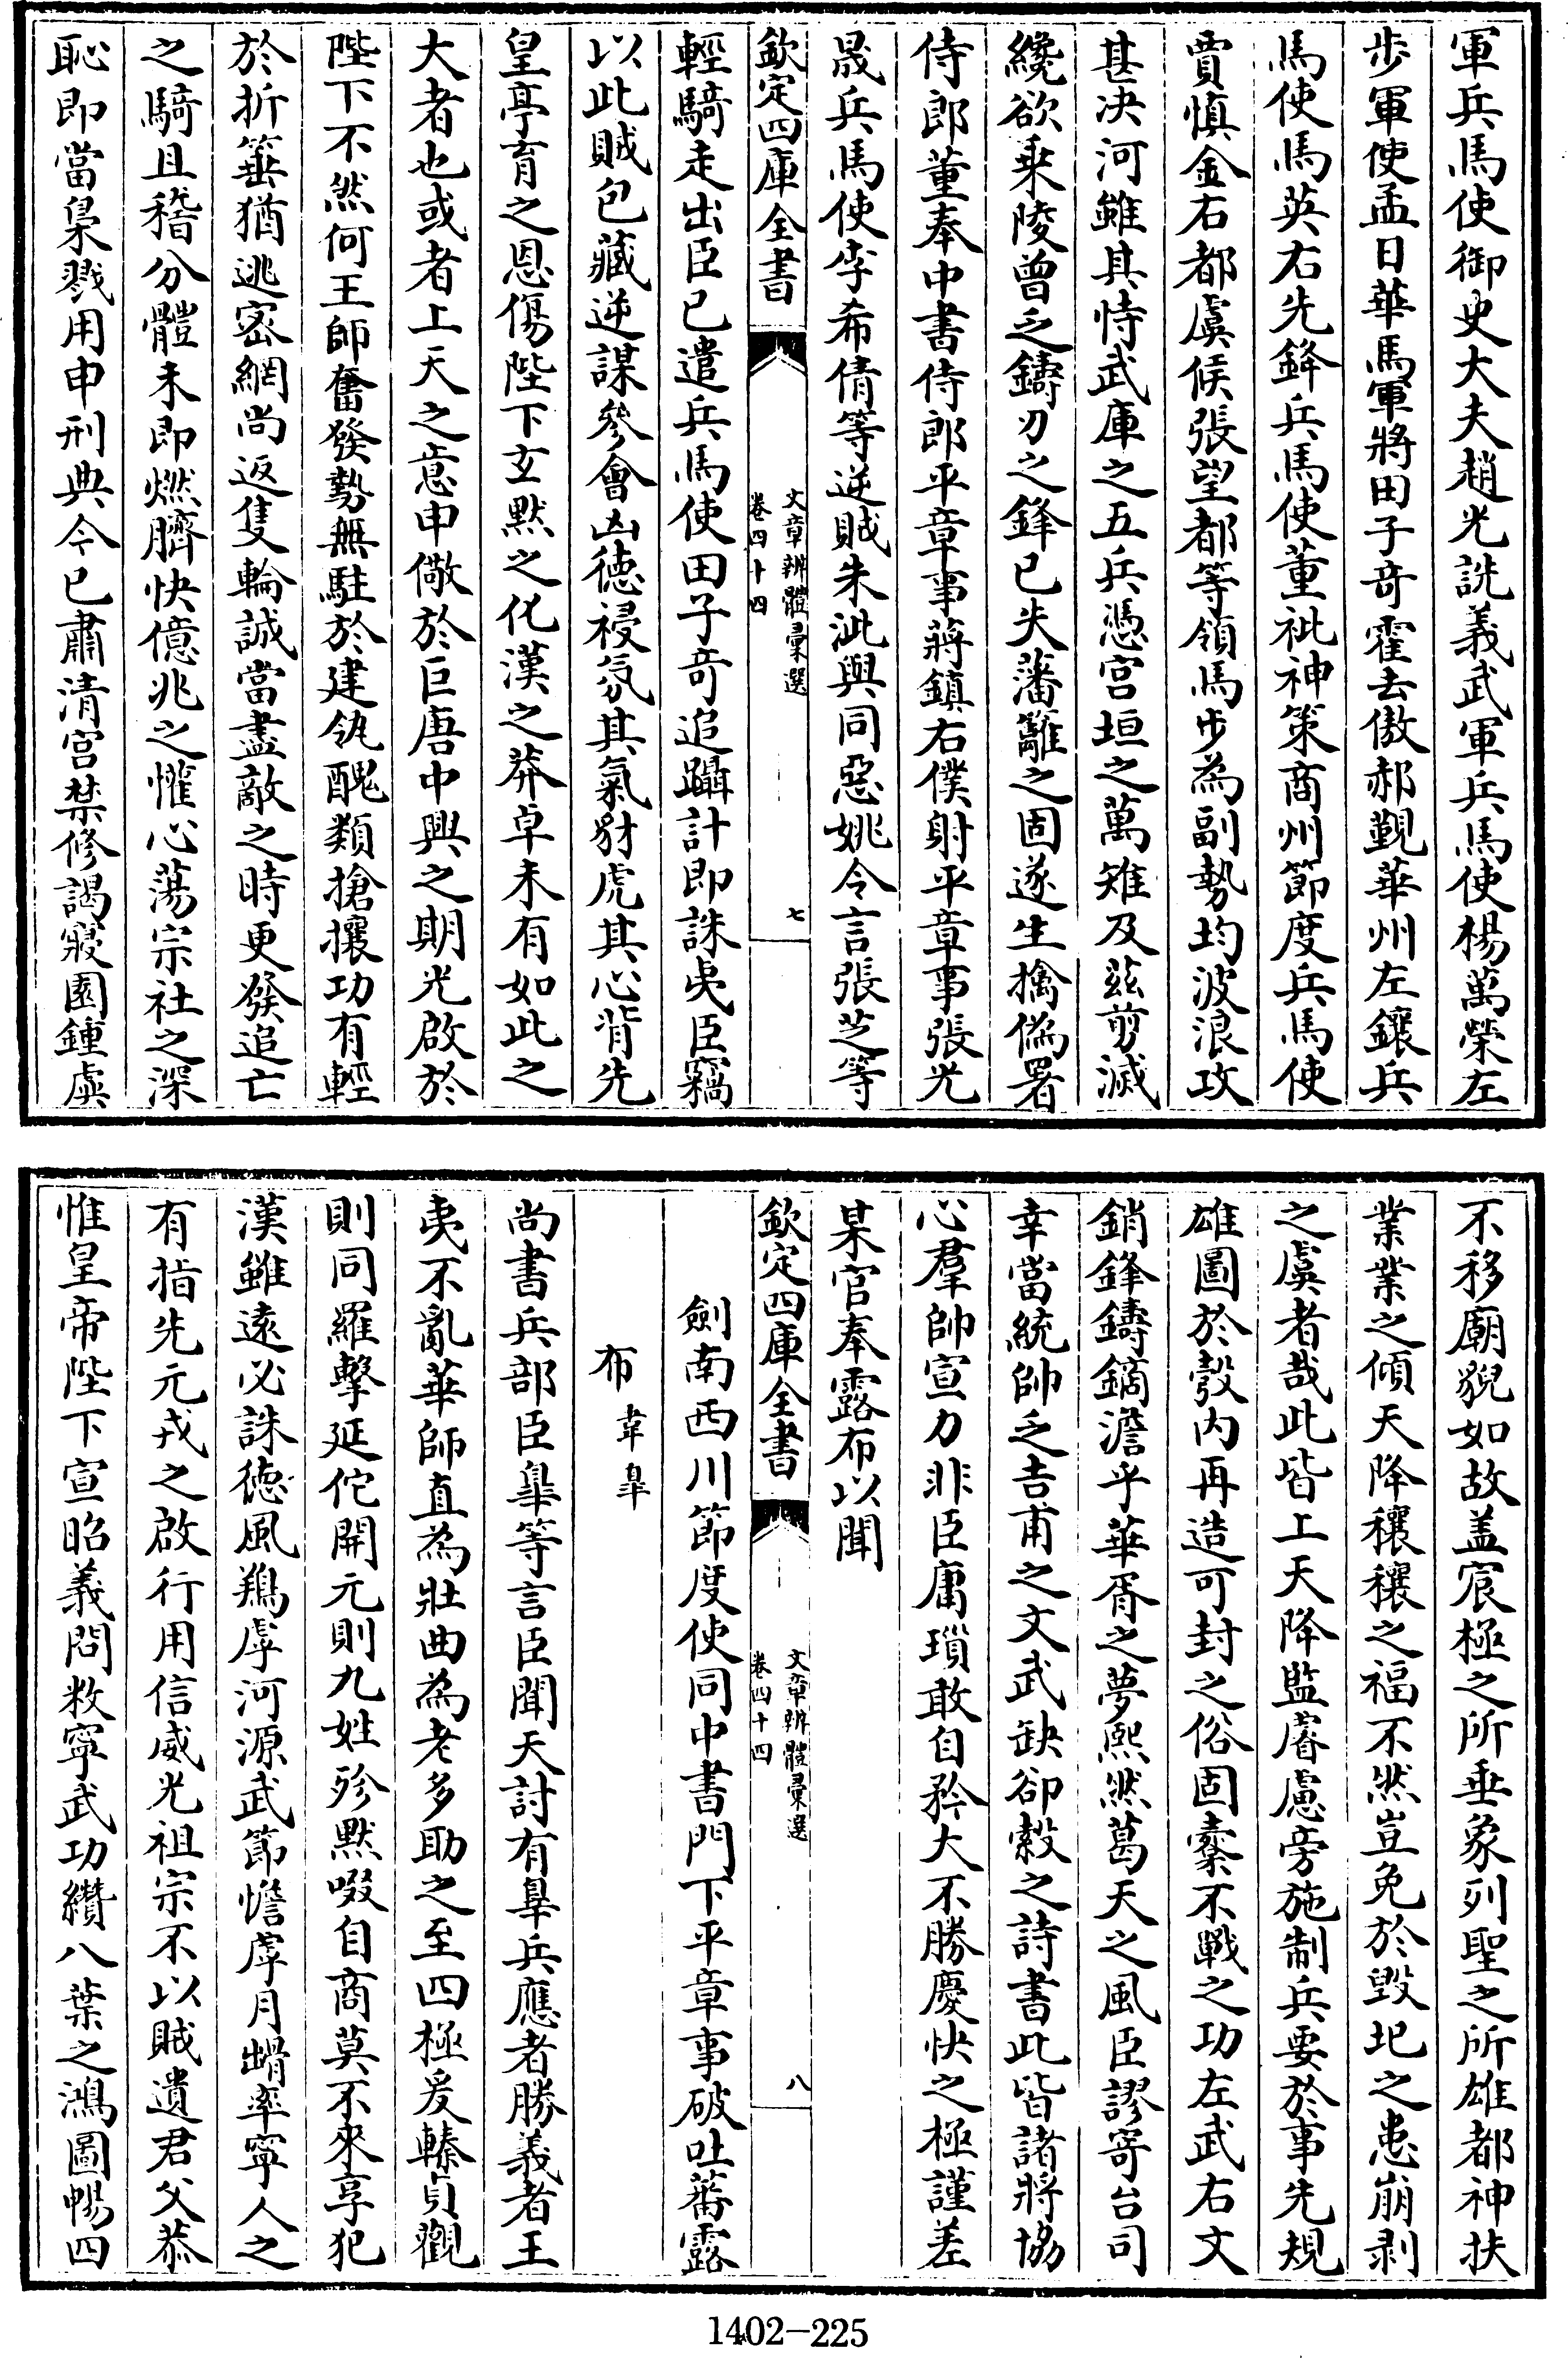 軍兵馬使御史大夫趙光詵義武軍兵馬使楊萬榮左
步軍使孟日華馬軍將田子奇霍去傲郝覲華州左鑲兵
馬使馬英右先鋒兵馬使董祉神策商州節度兵馬使
賈慎金右都虞候張望都等領馬步為副勢均波浪攻
甚决河雖其恃武庫之五兵憑宫垣之萬雉及兹剪滅
纔欲乗陵曾乏鑄刀之鋒已失藩籬之固遂生擒偽署
侍郎董奉中書侍郎平章事蔣鎮右僕射平章事張光
晟兵馬使李希倩等逆賊朱泚與同惡姚令言張芝等
欽定四庫全書
文章辨體彚選
卷四十四
七
輕騎走出臣已遣兵馬使田子奇追躡計即誅夷臣竊
以此賊包藏逆謀參會凶徳祲氛其氣豺虎其心背先
皇亭育之恩傷陛下玄黙之化漢之莽卓未有如此之
大者也或者上天之意申儆於巨唐中興之期光啟於
陛下不然何王師奮發勢無駐於建瓴醜類搶攘功有輕
於折箠猶逃宻網尚返隻輪誠當盡敵之時更發追亡
之騎且稽分體未即燃臍快億兆之懽心蕩宗社之深
恥即當梟戮用申刑典今已肅清宫禁修謁寢園鍾虡
不移廟貌如故盖宸極之所垂象列聖之所雄都神扶
業業之傾天降穰穰之福不然豈免於毁圮之患崩剥
之虞者哉此皆上天降監睿慮旁施制兵要於事先規
雄圖於彀内再造可封之俗固槖不戰之功左武右文
銷鋒鑄鏑澹乎華胥之夢熙然葛天之風臣謬寄台司
幸當統帥乏吉甫之文武缺郤縠之詩書此皆諸將協
心羣帥宣力非臣庸瑣敢自矜大不勝慶快之極謹差
某官奉露布以聞
欽定四庫全書
文章辨體彚選
卷四十四
八
劍南西川節度使同中書門下平章事破吐蕃露
布韋臯
尚書兵部臣臯等言臣聞天討有辠兵應者勝義者王
夷不亂華師直為壯曲為老多助之至四極爰轃貞觀
則同羅擊延佗開元則九姓殄黙啜自商莫不來享犯
漢雖遠必誅徳風鶏虖河源武節憺虖月𡺚率寧人之
有指先元戎之啟行用信威光祖宗不以賊遺君父恭
惟皇帝陛下宣昭義問敉寧武功纘八葉之鴻圖暢四
1402-225